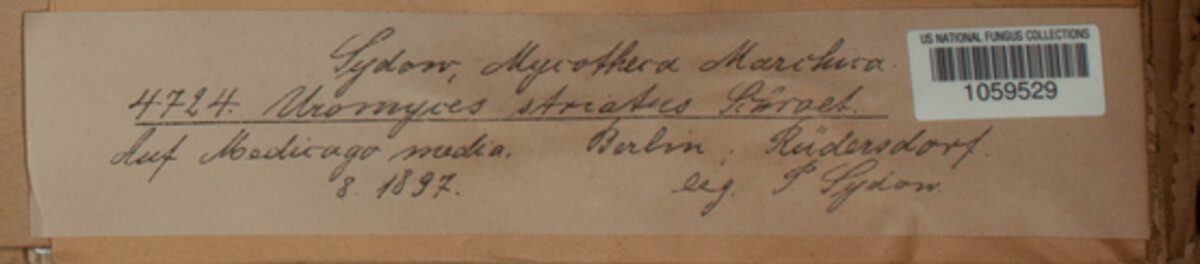 Sydow, Mycotheca Marchica.
4724. Uromyces striatus Schroet.
Auf Medicago media. Berlin; Rüdersdorf.
8. 1897. leg. P. Sydow.
US NATIONAL FUNGUS COLLECTIONS
1059529